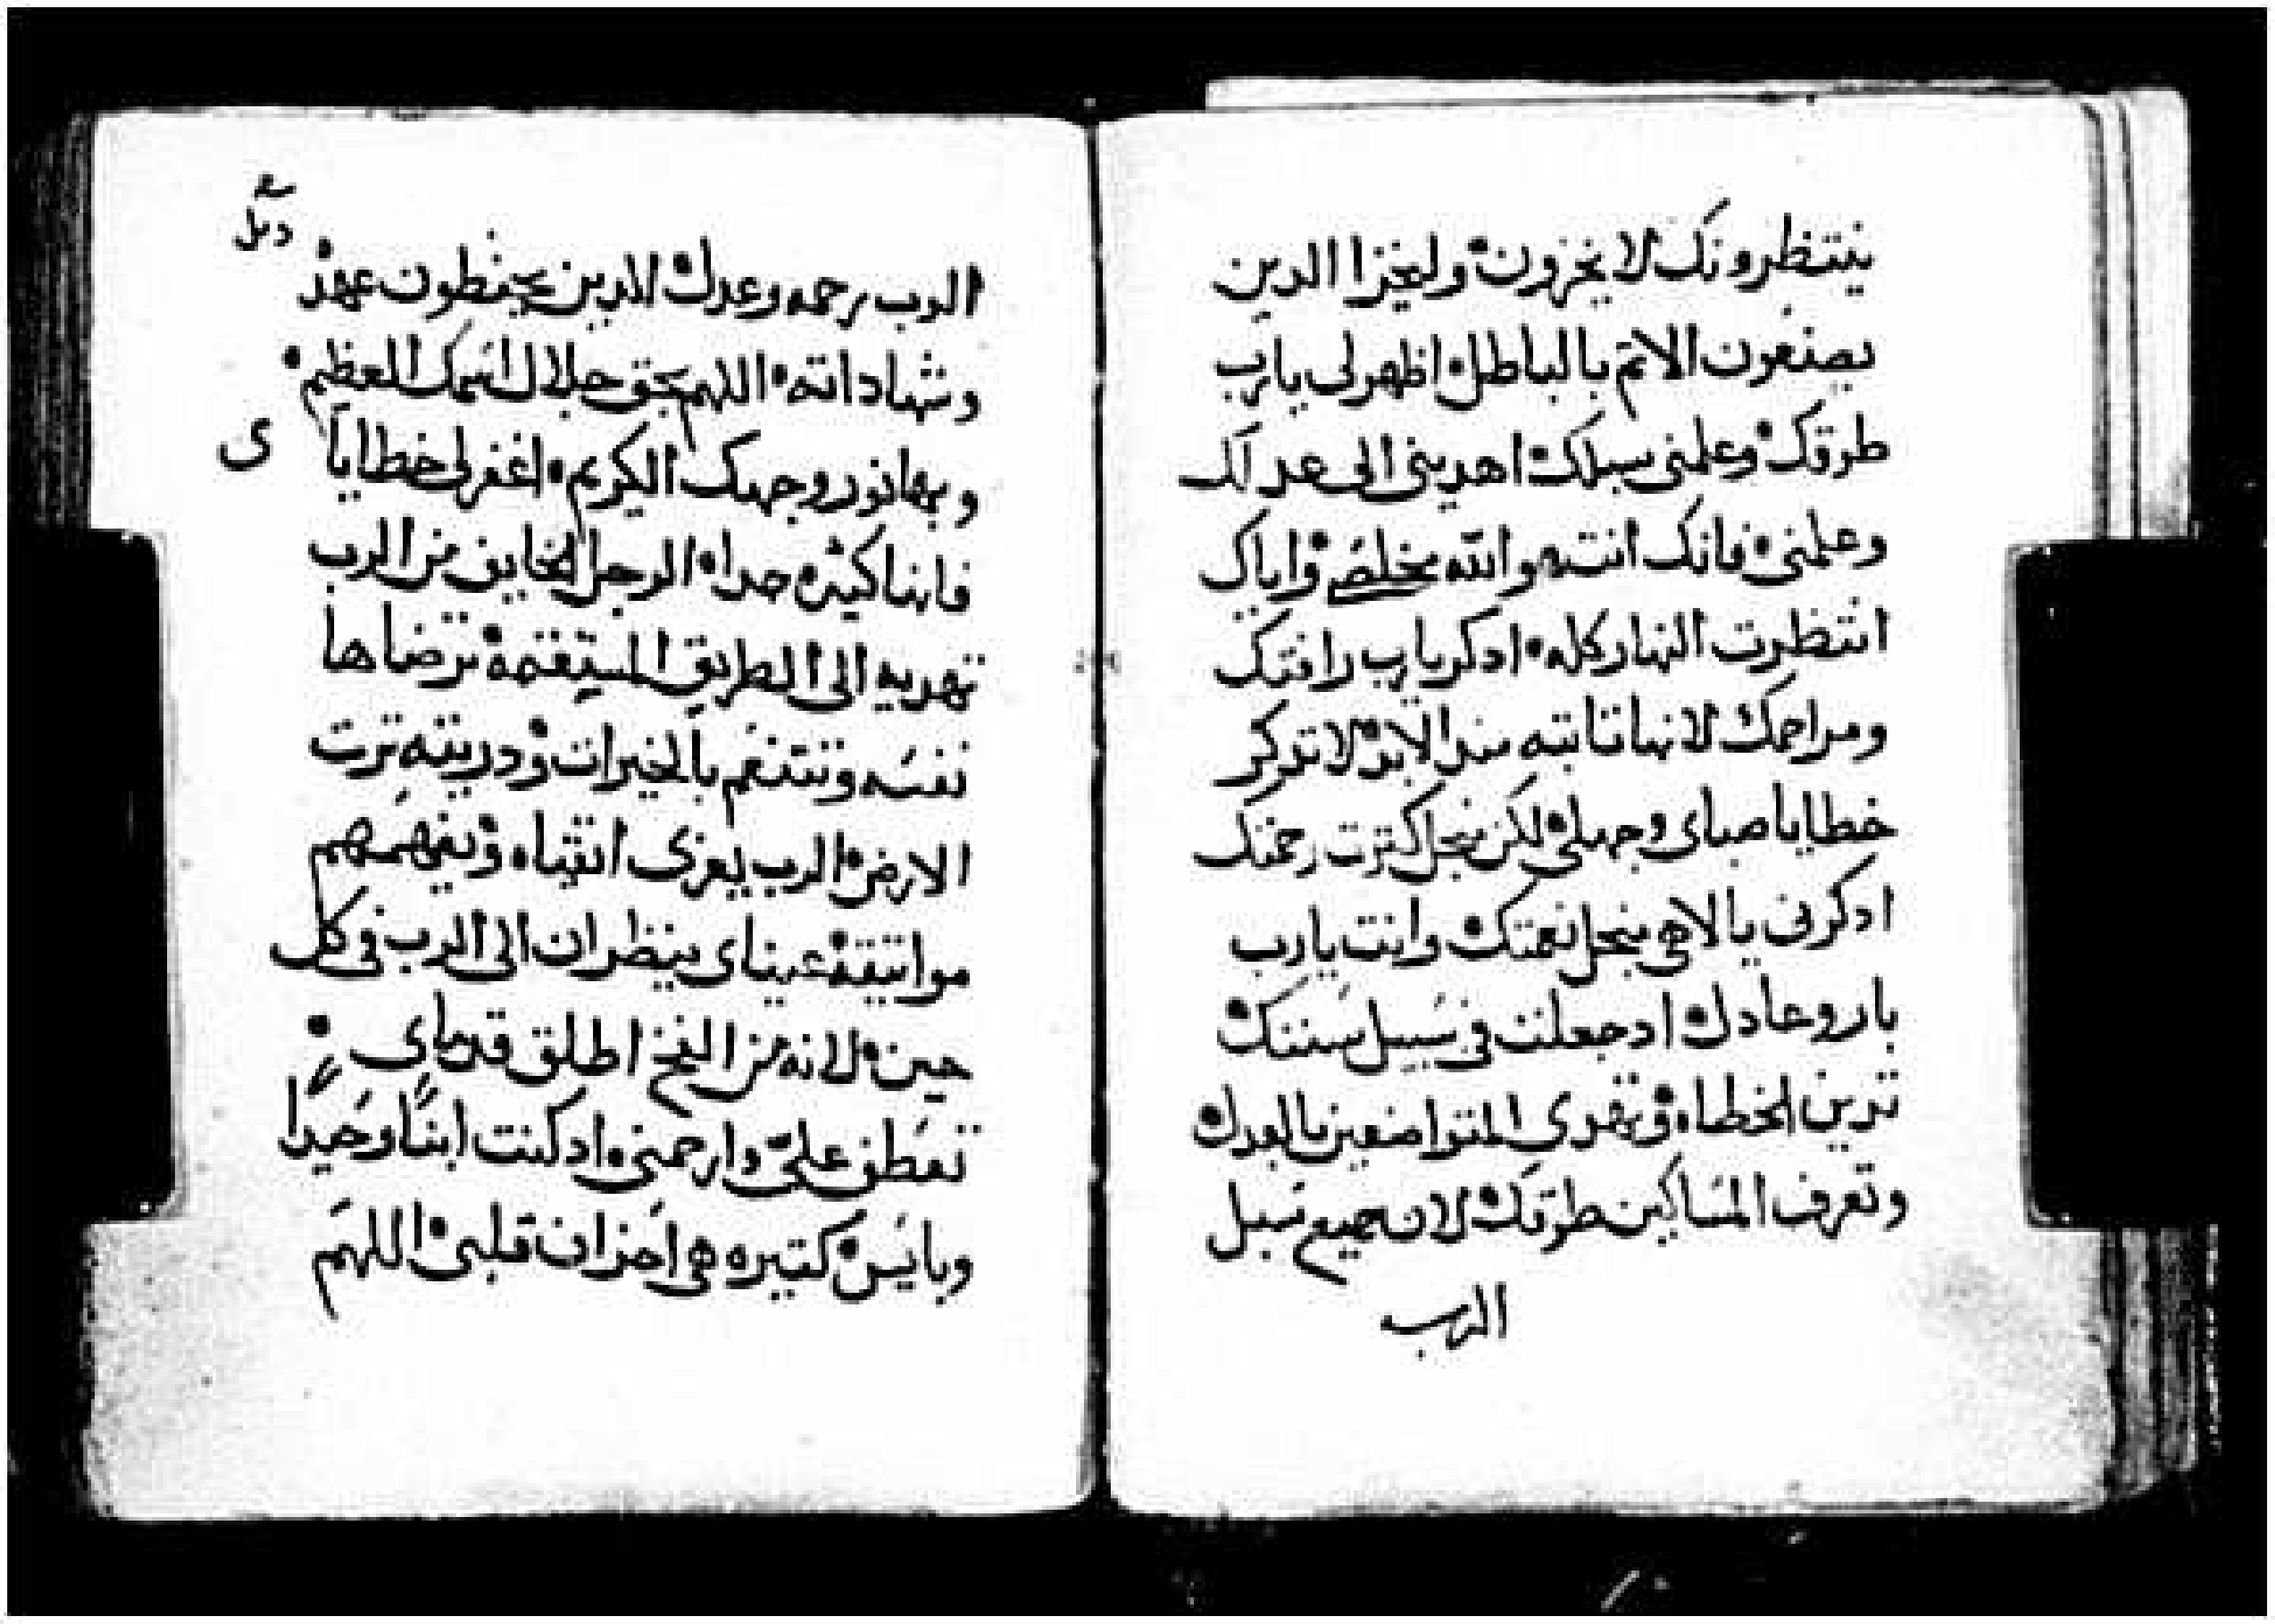 ينتظرونك لا يخزون وليخزا الدين
يصنعون الاتم بالباطل اظهرلى يارب
طرقك وعلمنى سبلك اهدينى الى عدلك
وعلمنى فانك انت هو الله مخلصى واياك
انتظرت النهار كله ادكر يارب رافتك
ومراحمك لانها تابته مند الابد لا تدكر
خطايا صباى وجهلى لكن منجل كترت رحمتك
ادكرنى يا الاهى منجل نعمتك وانت يارب
بار وعادل ادجعلت فى سبيل سننك
تدين الخطاه وتهدى المتواضعين بالعدل
وتعرف المساكين طرقك لان جميع سبل
الرب
الرب رحمه وعدل اللدين يحفظون عهده
وشهاداته اللهم بحق جلال اسمك العظيم
وبهانور وجهك الكريم اغفرلى خطاياى
فانها كثيره جدا الرجل الخايف من الرب
تهديه الى الطريق المستقمه ترضاها
نفسه وتتنعم بالخيرات ودريته ترت
الارض الرب يعزى انتباه ويفهمهم
مواتيقه عيناى ينظران الى الرب فى كل
حين لانه من الفخ اطلق قدماى
تعطف علىّ وارحمنى ادكنت ابنًا وحيدًا
وبايس كتيره هى احزان قلبى اللهم